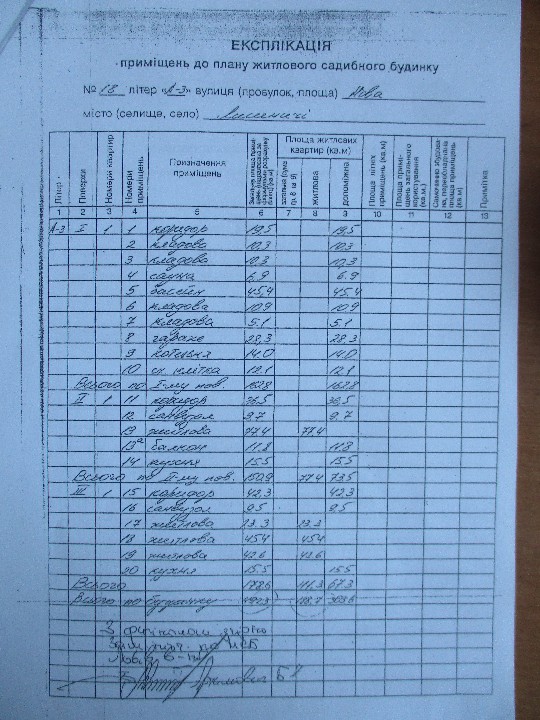 ЕКСПЛІКАЦІЯ
приміщень до плану житлового садибного будинку
№ 18 літер «А-3» вулиця (провулок, площа) Нова
місто (селище, село) Лисиничі
Літер Поверхи Номери квартир Номери приміщень Призначення приміщень Площа житлових квартир (кв.м) загальна (сума гр. 8 та 9) житлова допоміжна Площа літніх приміщень (кв.м) Площа приміщень загального користування (кв.м.) Примітка
1 2 3 4 5 6 7 8 9 10 11 12 13
А-3 I 1 1 коридор 19,5 19,5
2 кладова 10,3 10,3
3 кладова 10,3 10,3
4 сауна 6,9 6.9
5 басейн 45,4 45.4
6 кладова 10,9 10,9
7 кладова 5.1 5.1
8 гараж 28,3 28.3
9 котельня 14.0 14.0
10 сх. клітка 12,1 12,1
Всього по I-му пов. 162,8 162,8
II 1 11 коридор 36,5 36,5
12 санвузол 9.7 9.7
13 житлова 77.4 77.4
13а балкон 11.8 11.8
14 кухня 15.5 15.5
Всього по II-му пов. 150,9 77.4 73.5
III 1 15 коридор 42.3 42.3
16 санвузол 9.5 9.5
17 житлова 23.3 23.3
18 житлова 45.4 45.4
19 житлова 42.6 42.6
20 кухня 15.5 15.5
Всього 178,6 111.3 67.3
Всього по будинку 188,7 303,6
З